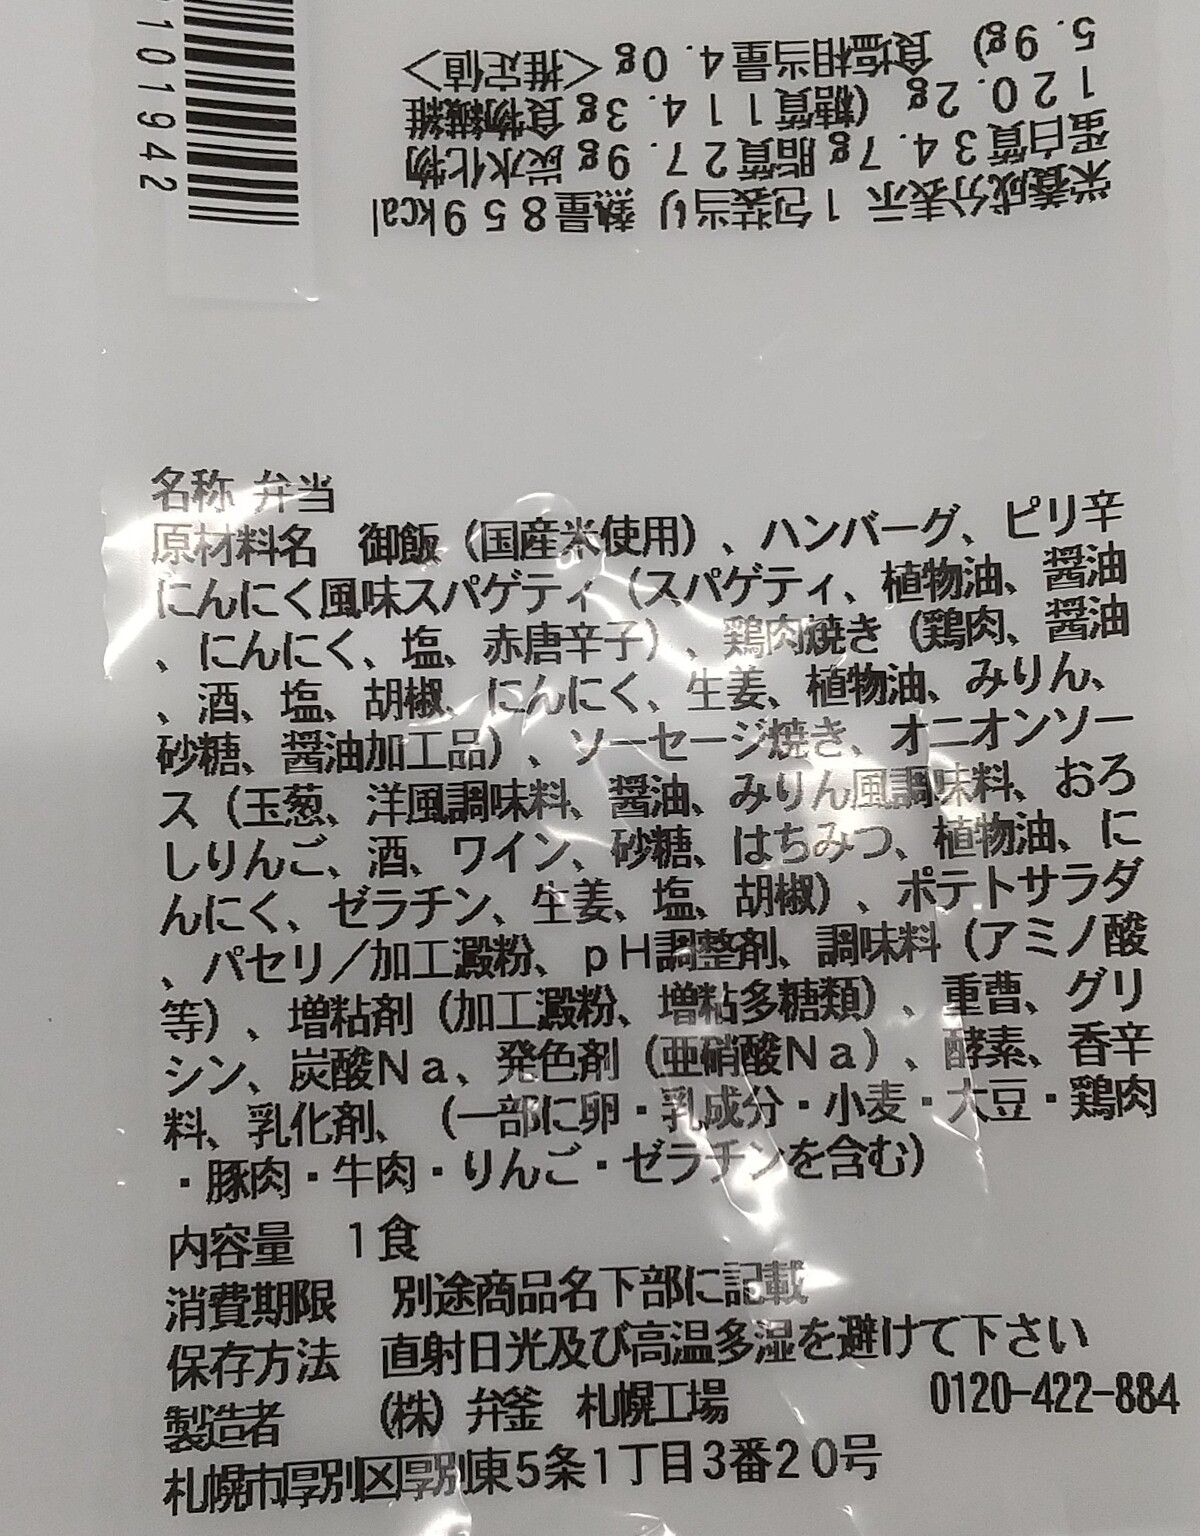 栄養成分表示 1包装当り 熱量859kcal
蛋白質34.7g 脂質27.9g 炭水化物
120.2g (糖質114.3g 食物繊維
5.9g) 食塩相当量4.0g <推定値>
101942
名称 弁当
原材料名 御飯(国産米使用)、ハンバーグ、ピリ辛
にんにく風味スパゲティ(スパゲティ、植物油、醤油
、にんにく、塩、赤唐辛子)、鶏肉焼き(鶏肉、醤油
、酒、塩、胡椒、にんにく、生姜、植物油、みりん、
砂糖、醤油加工品)、ソーセージ焼き、オニオンソー
ス(玉葱、洋風調味料、醤油、みりん風調味料、おろ
しりんご、酒、ワイン、砂糖、はちみつ、植物油、に
んにく、ゼラチン、生姜、塩、胡椒)、ポテトサラダ
、パセリ/加工澱粉、pH調整剤、調味料(アミノ酸
等)、増粘剤(加工澱粉、増粘多糖類)、重曹、グリ
シン、炭酸Na、発色剤(亜硝酸Na)、酵素、香辛
料、乳化剤、(一部に卵・乳成分・小麦・大豆・鶏肉
・豚肉・牛肉・りんご・ゼラチンを含む)
内容量 1食
消費期限 別途商品名下部に記載
保存方法 直射日光及び高温多湿を避けて下さい
製造者 (株)弁釜 札幌工場 0120-422-884
札幌市厚別区厚別東5条1丁目3番20号